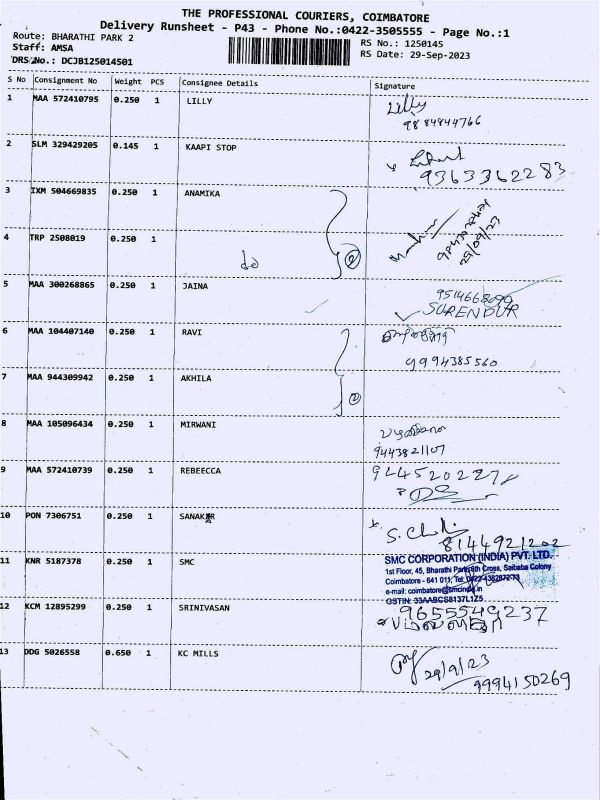 THE PROFESSIONAL COURIERS, COIMBATORE
Delivery Runsheet - P43 - Phone No.:0422-3505555 - Page No.:1
Route: BHARATHI PARK 2
RS No.: 1250145
Staff: AMSA
RS Date: 29-Sep-2023
DRS No.: DCJB125014501
S No Consignment No Weight PCS Consignee Details Signature
1 MAA 572410795 0.250 1 LILLY Lilly
9884844766
2 SLM 329429205 0.145 1 KAAPI STOP
9363362283
3 IXM 504669835 0.250 1 ANAMIKA
29/09/23
4 TRP 2508019 0.250 1 do 2
5 MAA 300268865 0.250 1 JAINA
SURENDUR
6 MAA 104407140 0.250 1 RAVI
9994385560
7 MAA 944309942 0.250 1 AKHILA 2
8 MAA 105096434 0.250 1 MIRWANI
9443821107
9 MAA 572410739 0.250 1 REBEECCA
10 PON 7306751 0.250 1
8144921202
11 KNR 5187378 0.250 1 SMC
SMC CORPORATION (INDIA) PVT. LTD.
1st Floor, 45, Bharathi Park 6th Cross, Saibaba Colony
Coimbatore - 641 011, Tel:
e-mail: coimbatore@smcind.in
12 KCM 12895299 0.250 1 SRINIVASAN
9655549237
13 DDG 5026558 0.650 1 KC MILLS
29/9/23
9994150269